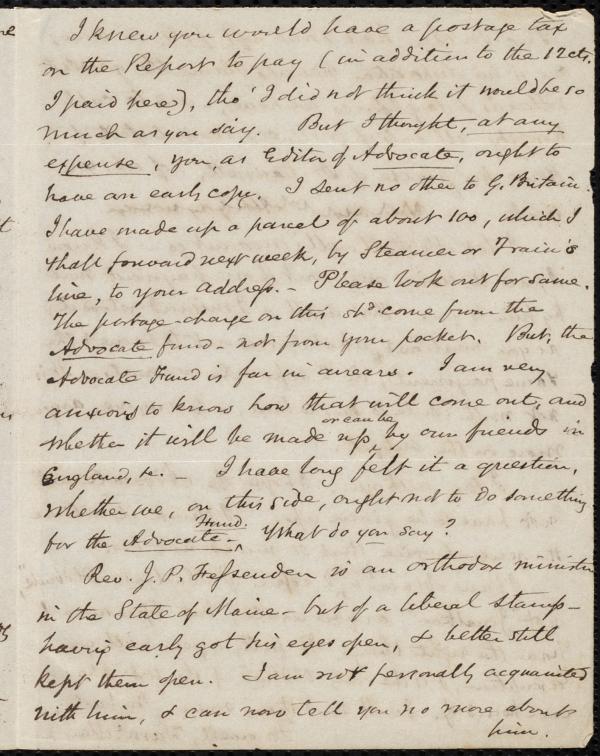 I knew you would have a postage tax
on the Report to pay (in addition to the 12 cts.
I paid here), tho' I did not think it would be so
much as you say. But I thought, at any
expense, you, as Editor of Advocate, ought to
have an early copy. I sent no other to G. Britain.
I have made up a parcel of about 100, which I
shall forward next week, by Steamer or Train's
line, to your address. - Please look out for same.
The postage-charge on this shd. come from the
Advocate fund - not from your pocket. But, the
Advocate Fund is far in arrears. I am very
anxious to know how that will come out, and
or can be
whether it will be made up, by our friends in
England, &c. - I have long felt it a question,
whether we, on this side, ought not to do something
Fund.
for the Advocate-^ What do you say?
Rev. J. P. Fessenden is an orthodox minister
in the State of Maine - but of a liberal stamp -
having early got his eyes open, & better still
kept them open. I am not personally acquainted
with him, & can now tell you no more about
him.